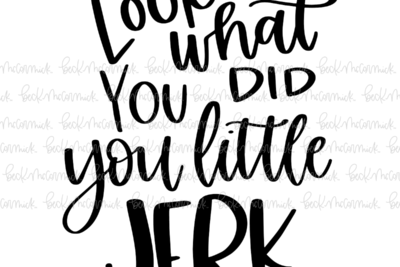 Look
what
YOU DID
you little
JERK